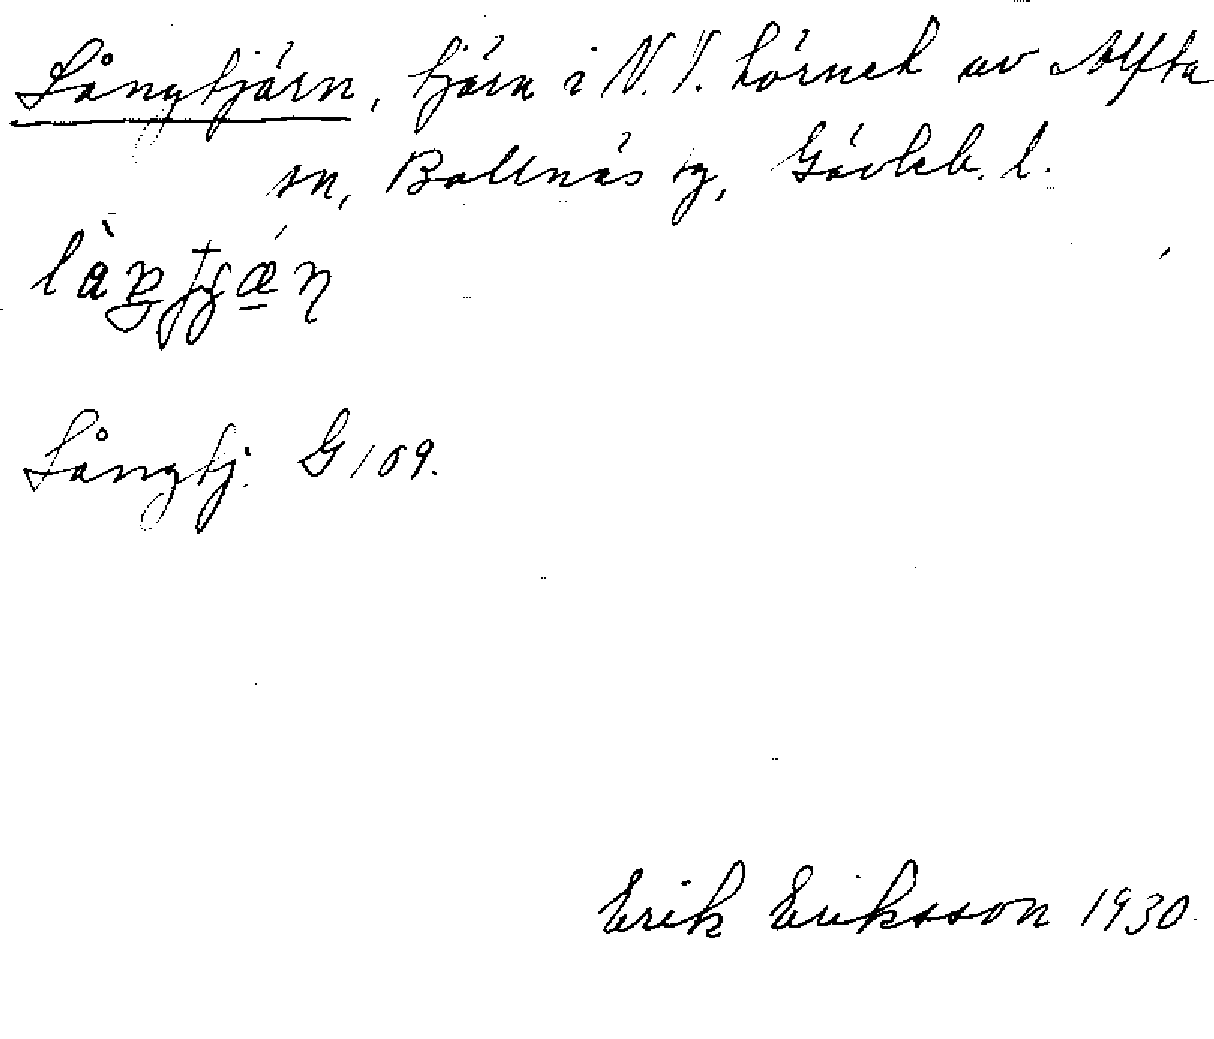 Långtjärn, tjärn i N.V. hörnet av Alfta
sn, Bollnäs tg, Gävleb. l.
Långtj. G 109.
Erik Eriksson 1930